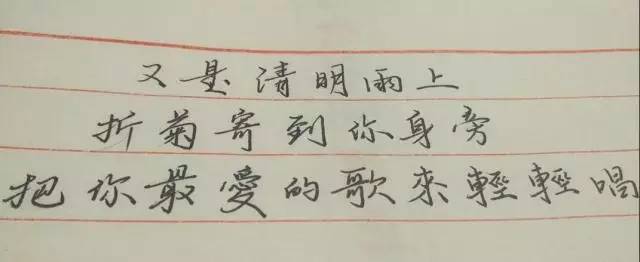 又是清明雨上
折菊寄到你身旁
把你最愛的歌來輕輕唱